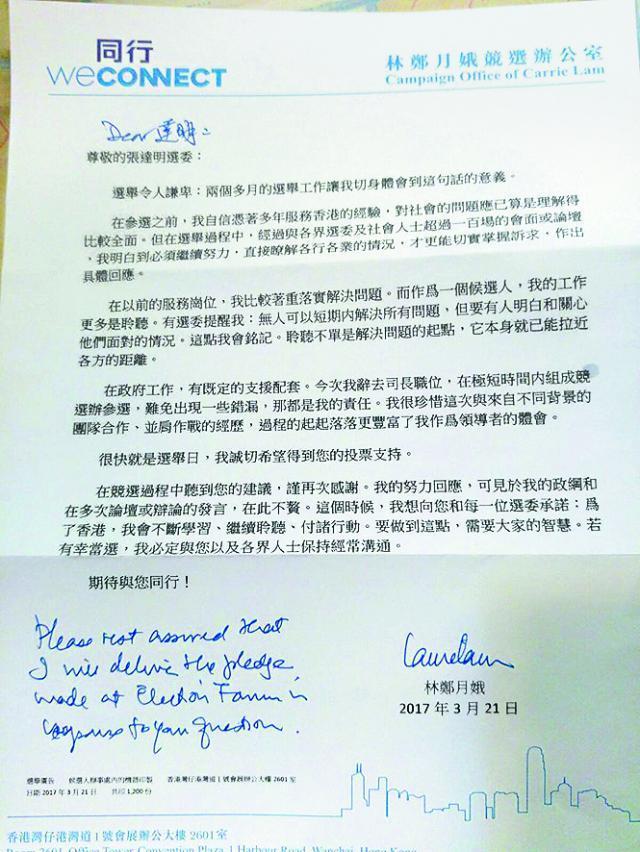 同行
WeCONNECT
林鄭月娥競選辦公室
Campaign Office of Carrie Lam
Dear 達明：
尊敬的張達明選委：
選舉令人謙卑：兩個多月的選舉工作讓我切身體會到這句話的意義。
在參選之前，我自信憑著多年服務香港的經驗，對社會的問題應已算是理解得
比較全面。但在選舉過程中，經過與各界選委及社會人士超過一百場的會面或論壇
、我明白到必須繼續努力，直接瞭解各行各業的情況，才更能切實掌握訴求，作出
具體回應。
在以前的服務崗位，我比較著重落實解決問題。而作爲一個候選人，我的工作
更多是聆聽。有選委提醒我：無人可以短期內解決所有問題，但要有人明白和關心
他們面對的情況。這點我會銘記。聆聽不單是解決問題的起點，它本身就已能拉近
各方的距離。
在政府工作，有既定的支援配套。今次我辭去司長職位，在極短時間內組成競
選辦參選，難免出現一些錯漏，那都是我的責任。我很珍惜這次與來自不同背景的
團隊合作、並肩作戰的經歷，過程的起起落落更豐富了我作爲領導者的體會。
很快就是選舉日，我誠切希望得到您的投票支持。
在競選過程中聽到您的建議，謹再次感謝。我的努力回應，可見於我的政綱和
在多次論壇或辯論的發言，在此不贅。這個時候，我想向您和每一位選委承諾：爲
了香港，我會不斷學習、繼續聆聽、付諸行動。要做到這點，需要大家的智慧。若
有幸當選，我必定與您以及各界人士保持經常溝通。
期待與您同行！
Please rest assured that
I will deliver the pledge
made at Election Forum in
response to your question.
林鄭月娥
2017 年 3 月 21 日
選舉廣告 候選人辦事處內的機器印製 香港灣仔港灣道 1 號會展辦公大樓 2601 室
日期 2017 年 3 月 21 日 共印 1,200 份
香港灣仔港灣道 1 號會展辦公大樓 2601 室
Room 2601, Office Tower, Convention Plaza, 1 Harbour Road, Wanchai, Hong Kong